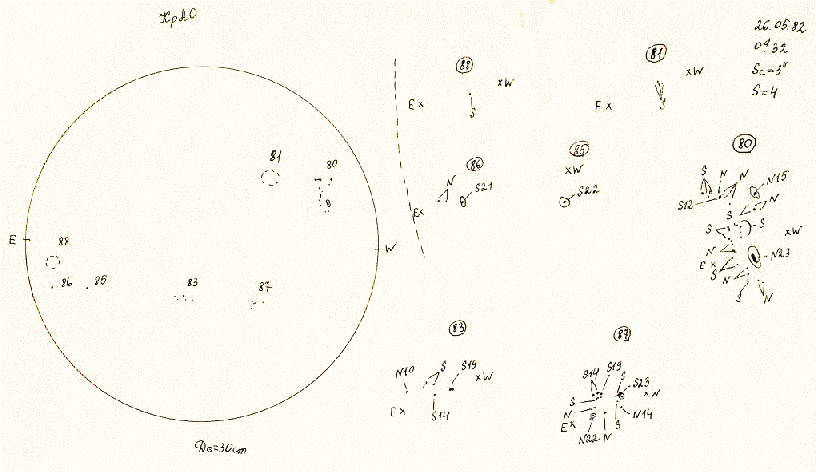 КрАО
26.05.82
S=4
E
W
81
80
88
86
85
83
87
D⊙=36cm
88
xW
E x
S
81
xW
E x
S
86
N
S21
E x
85
xW
S22
80
S
N
N
N15
S12
N
S
S
S
xW
N
N23
E x
S
N
S
N
83
N10
S
S15
xW
E x
S14
87
S14
S19
S
S23
S
N
N14
E x
N22
N
S